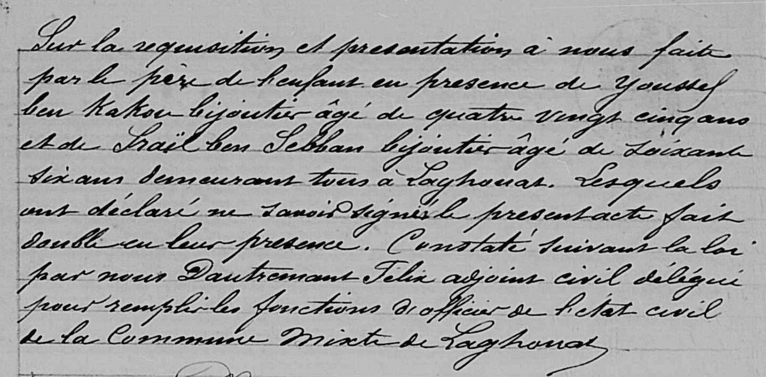 Sur la requisition et presentation à nous faite
par le père de l'enfant en presence de Youssef
ben Kakou bijoutier âgé de quatre vingt cinq ans
et de Israïl ben Sebban bijoutier âgé de soixante
six ans demeurant tous à Laghouat. Lesquels
ont déclaré ne savoir signer le present acte fait
double en leur presence. Constaté suivant la loi
par nous Dautremant Félix adjoint civil délégué
pour remplir les fonctions d'officier de l'état civil
de la Commune Mixte de Laghouat